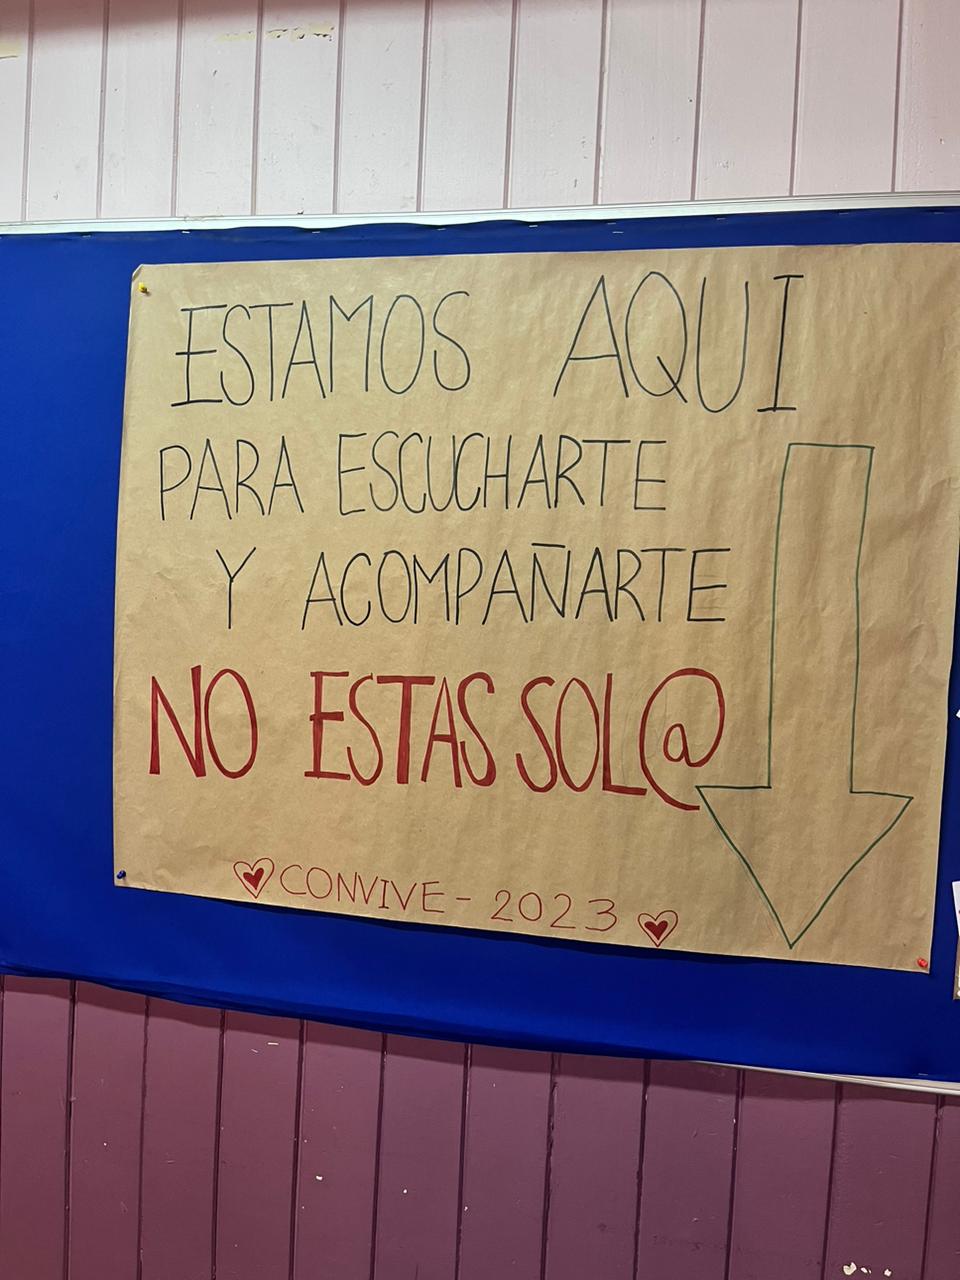 ESTAMOS AQUI
PARA ESCUCHARTE
Y ACOMPAÑARTE
NO ESTAS SOL@
CONVIVE - 2023